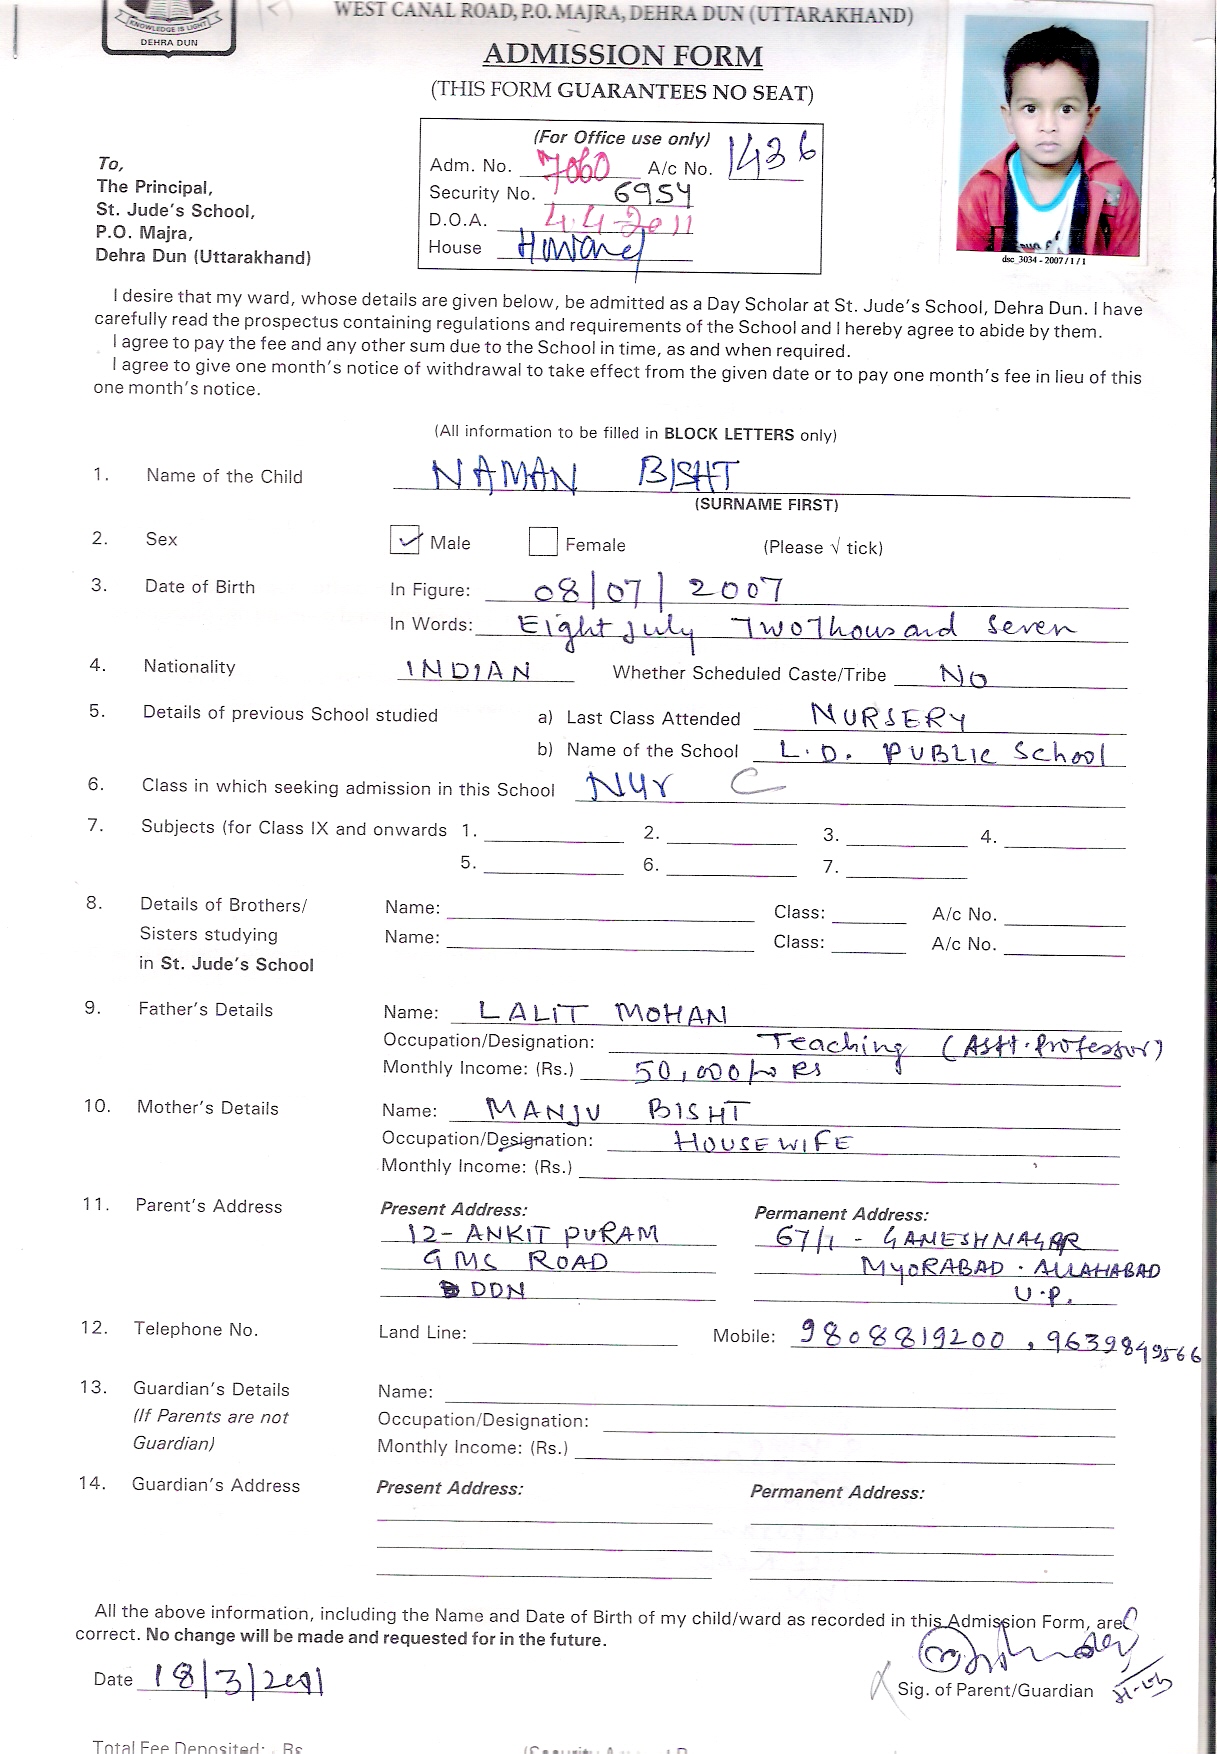 KNOWLEDGE IS LIGHT
DEHRA DUN
WEST CANAL ROAD, P.O. MAJRA, DEHRA DUN (UTTARAKHAND)
ADMISSION FORM
(THIS FORM GUARANTEES NO SEAT)
(For Office use only)
Adm. No. 7060 A/c No. 1436
Security No. 6954
D.O.A. 4.4-2011
House Howard
dsc_3034 - 2007/1/1
To,
The Principal,
St. Jude's School,
P.O. Majra,
Dehra Dun (Uttarakhand)
I desire that my ward, whose details are given below, be admitted as a Day Scholar at St. Jude's School, Dehra Dun. I have
carefully read the prospectus containing regulations and requirements of the School and I hereby agree to abide by them.
I agree to pay the fee and any other sum due to the School in time, as and when required.
I agree to give one month's notice of withdrawal to take effect from the given date or to pay one month's fee in lieu of this
one month's notice.
(All information to be filled in BLOCK LETTERS only)
1. Name of the Child NAMAN BISHT
(SURNAME FIRST)
2. Sex Male Female (Please √ tick)
3. Date of Birth In Figure: 08/07/2007
In Words: Eight July Two Thousand Seven
4. Nationality INDIAN Whether Scheduled Caste/Tribe No
5. Details of previous School studied a) Last Class Attended NURSERY
b) Name of the School L.D. PUBLIC School
6. Class in which seeking admission in this School Nur C
7. Subjects (for Class IX and onwards 1. 2. 3. 4.
5. 6. 7.
8. Details of Brothers/ Name: Class: A/c No.
Sisters studying Name: Class: A/c No.
in St. Jude's School
9. Father's Details Name: LALIT MOHAN
Occupation/Designation: Teaching (Asst. Professor)
Monthly Income: (Rs.) 50,000/- Rs
10. Mother's Details Name: MANJU BISHT
Occupation/Designation: HOUSEWIFE
Monthly Income: (Rs.)
11. Parent's Address Present Address: Permanent Address:
12- ANKIT PURAM 67/1 - GANESHNAGAR
GMS ROAD MYORABAD . ALLAHABAD
DDN U.P.
12. Telephone No. Land Line: Mobile: 9808819200 , 9639849566
13. Guardian's Details Name:
(If Parents are not Occupation/Designation:
Guardian) Monthly Income: (Rs.)
14. Guardian's Address Present Address: Permanent Address:
All the above information, including the Name and Date of Birth of my child/ward as recorded in this Admission Form, are
correct. No change will be made and requested for in the future.
Date 18/3/2011
Sig. of Parent/Guardian
Total Fee Deposited: Rs